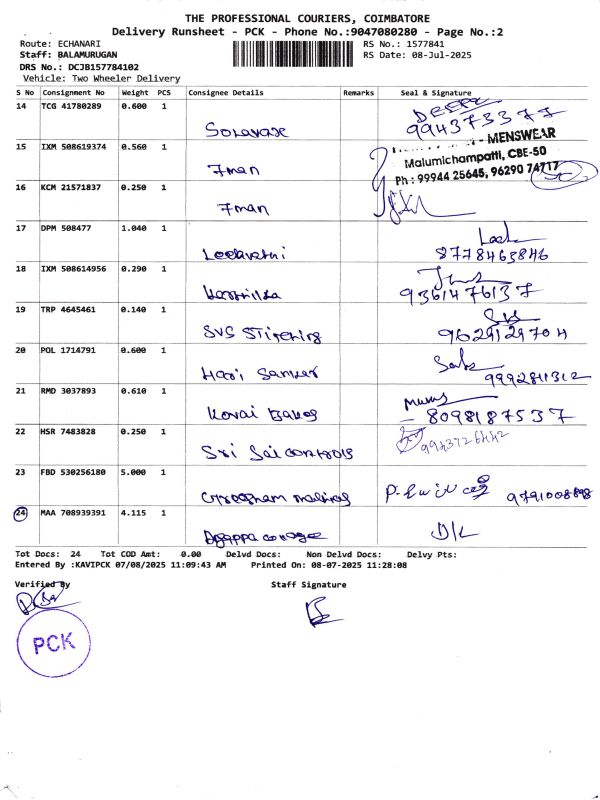 THE PROFESSIONAL COURIERS, COIMBATORE
Delivery Runsheet - PCK - Phone No.:9047080280 - Page No.:2
Route: ECHANARI RS No.: 1577841
Staff: BALAMURUGAN RS Date: 08-Jul-2025
DRS No.: DCJB157784102
Vehicle: Two Wheeler Delivery
S No Consignment No Weight PCS Consignee Details Remarks Seal & Signature
14 TCG 41780289 0.600 1
9943753377
15 IXM 508619374 0.560 1 7man
- MENSWEAR
Malumichampatti, CBE-50
Ph : 99944 25645, 96290 74717
16 KCM 21571837 0.250 1 7man
17 DPM 508477 1.040 1 Leelavathi
8778463846
18 IXM 508614956 0.290 1
9361476137
19 TRP 4645461 0.140 1 SVS
9629129704
20 POL 1714791 0.600 1 Hari Sanker
9992811312
21 RMD 3037893 0.610 1 Kovai
8098187537
22 HSR 7483828 0.250 1 Sri Sai controls
9943726442
23 FBD 530256180 5.000 1
9791008898
24 MAA 708939391 4.115 1
D/L
Tot Docs: 24 Tot COD Amt: 0.00 Delvd Docs: Non Delvd Docs: Delvy Pts:
Entered By :KAVIPCK 07/08/2025 11:09:43 AM Printed On: 08-07-2025 11:28:08
Verified By Staff Signature
PCK